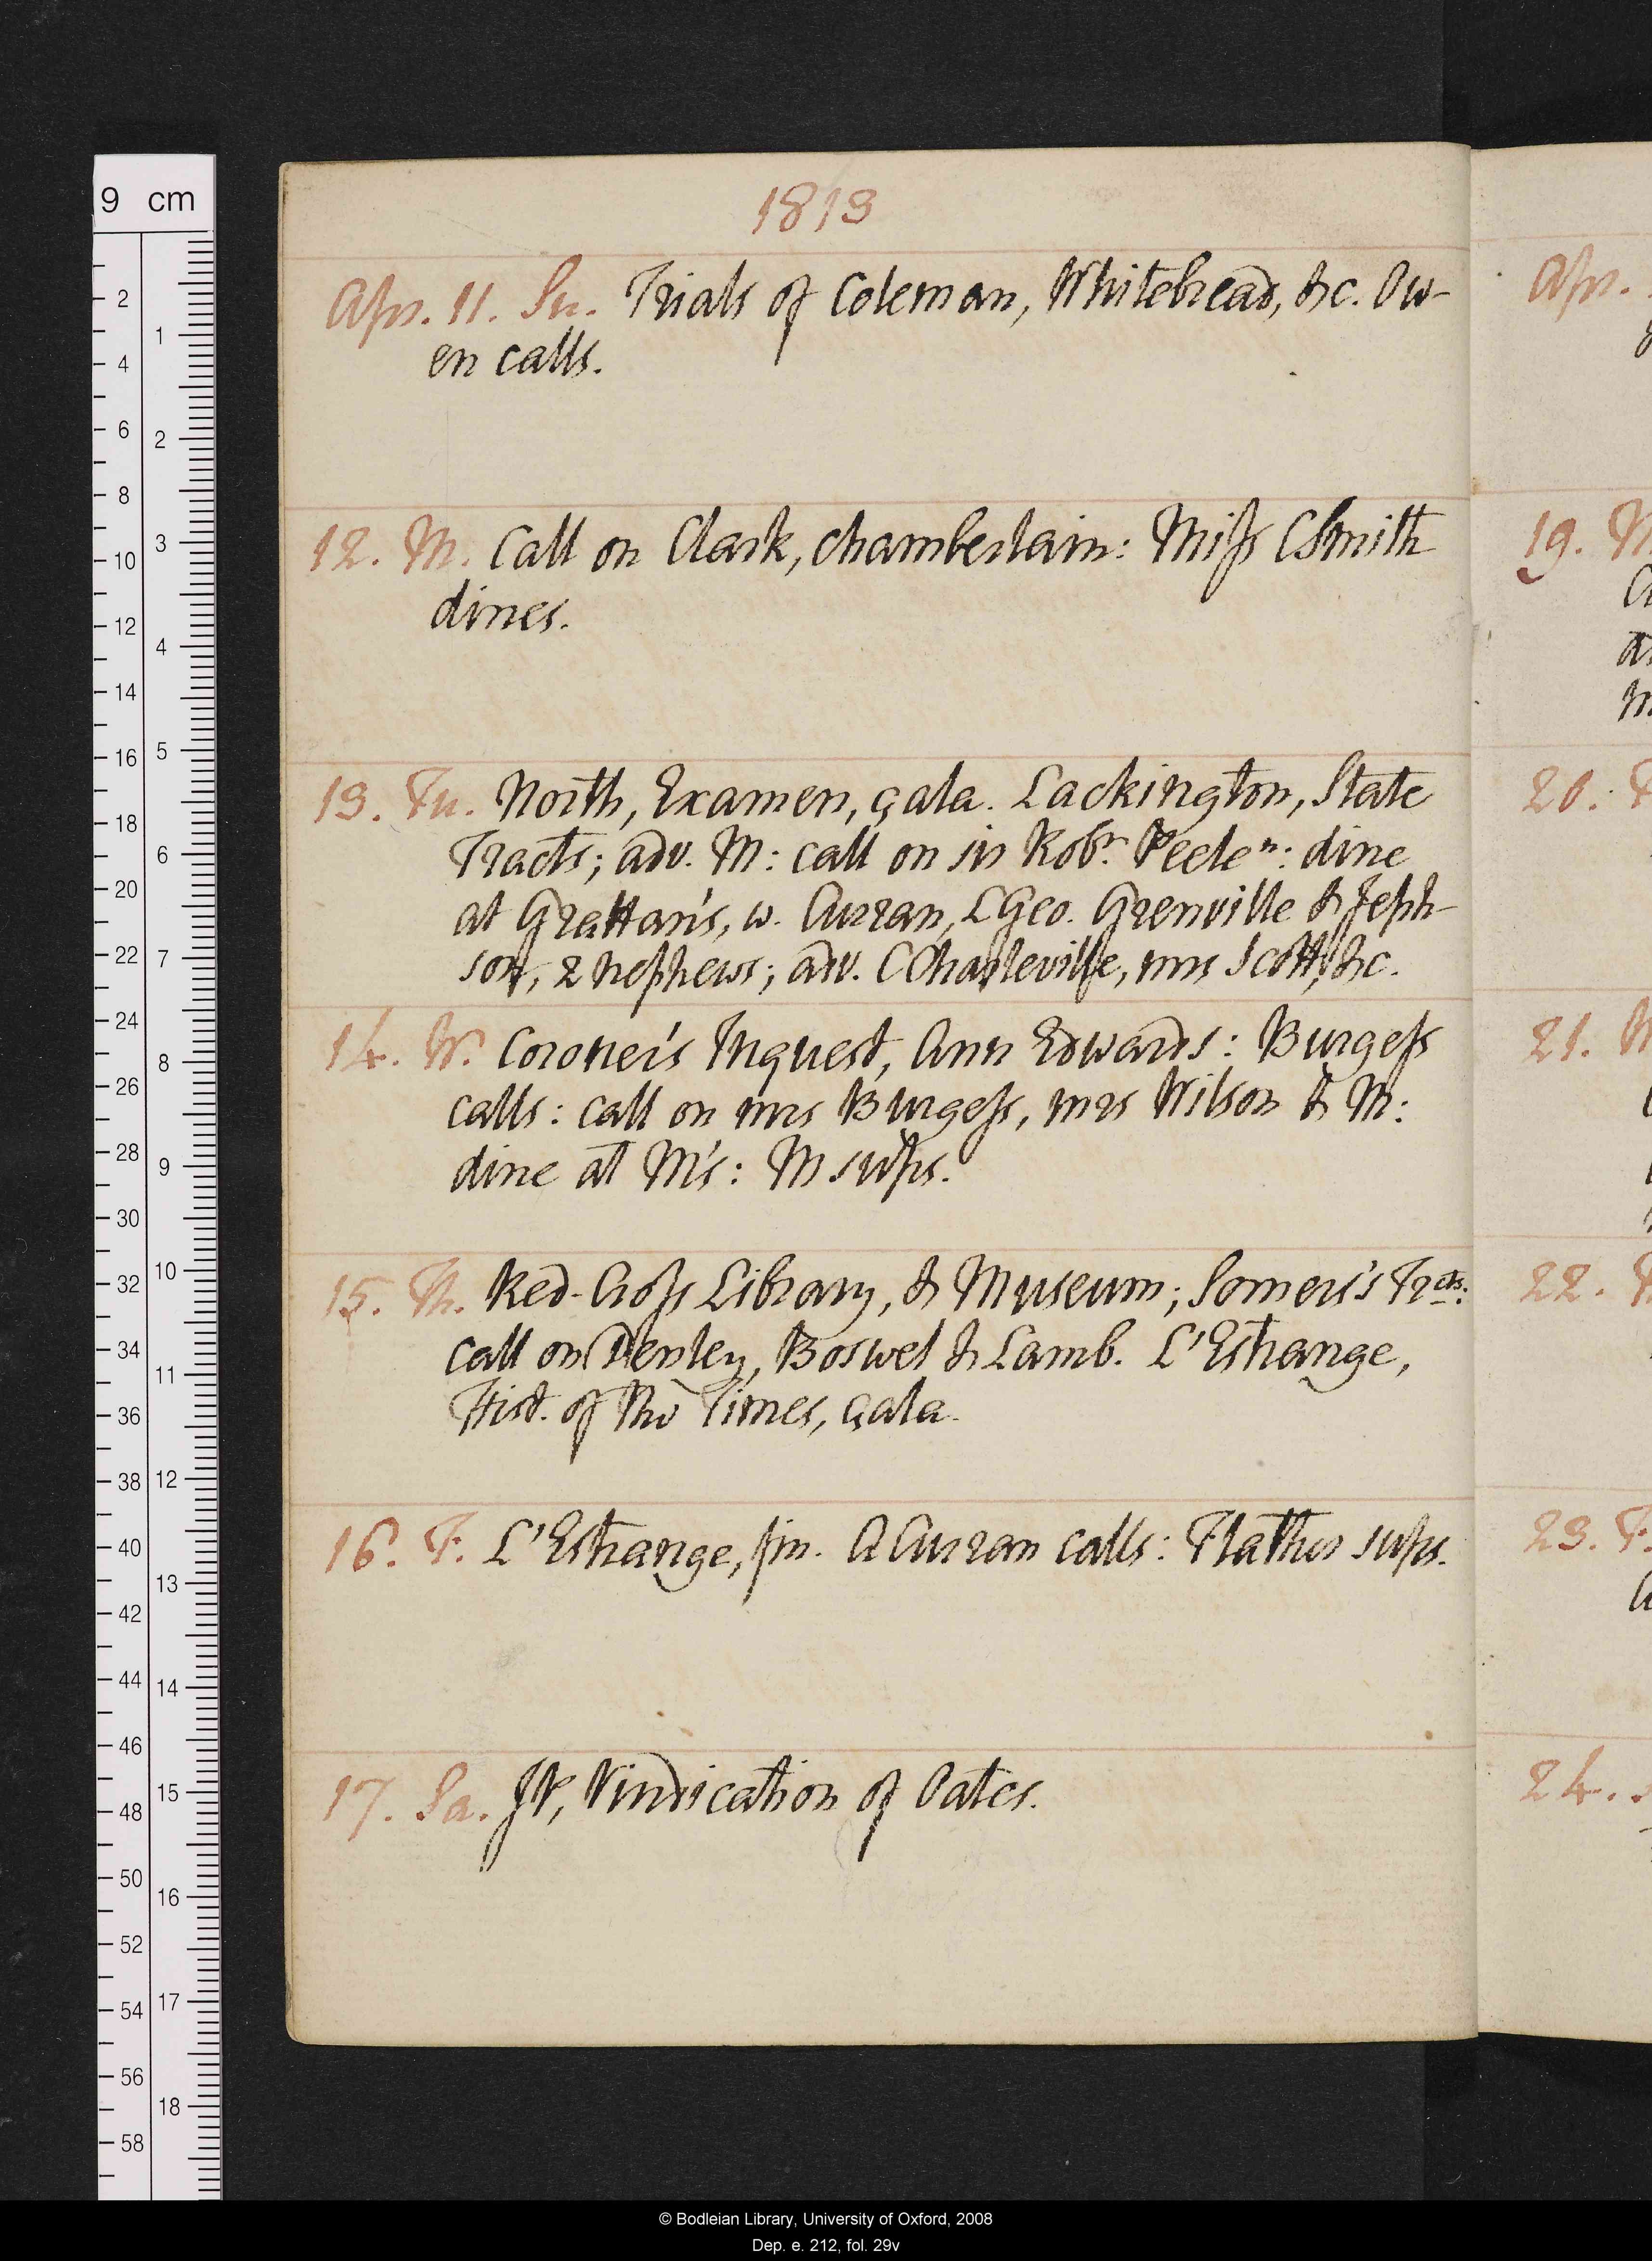 1813
Apr. 11. Su. Trials of Coleman, Whitebread, &c. Ow-
en calls.
12. M. Call on Clark, chamberlain: Miss CSmith
dines.
13. Tu. North, Examen, çala. Lackington, State
Tracts; adv. M: call on sir Robt. Peele n: dine
at Grattan's, w. Curran, LGeo. Grenville & Jeph-
son, 2 nephews; adv. CCharleville, mrs Scott, &c.
14. W. Coroner's Inquest, Ann Edwards: Burgess
calls: call on mrs Burgess, mrs Wilson & M:
dine at M's: M sups.
15. Th. Red-Cross Library, & Museum; Somers's Trcts:
call on Denley, Boswel & Lamb. L'Estrange,
Hist. of Times, çala.
16. F. L'Estrange, fin. ACurran calls: Flather sups.
17. Sa. JP, Vindication of Oates.
Apr.
19. M
20. T
21. W
22. T
23. F.
24. S
9 cm
2
4
6
8
10
12
14
16
18
20
22
24
26
28
30
32
34
36
38
40
42
44
46
48
50
52
54
56
58
1
2
3
4
5
6
7
8
9
10
11
12
13
14
15
16
17
18
© Bodleian Library, University of Oxford, 2008
Dep. e. 212, fol. 29v